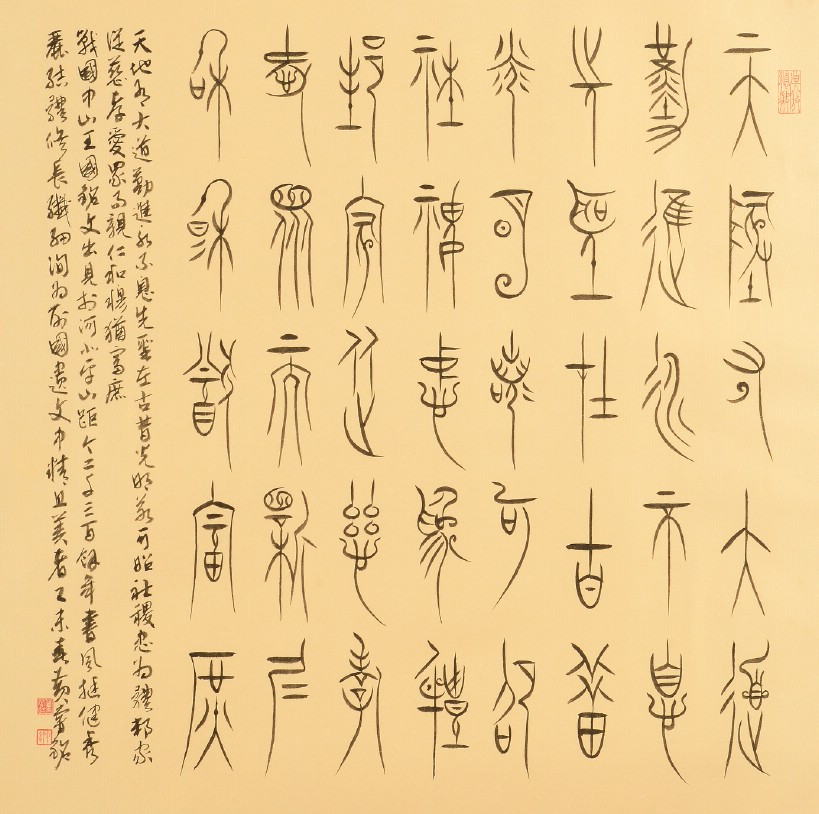 天地有大道
勤進永不息
先聖在古昔
光明可昭
社稷忠為體
邦家從慈孝
愛眾而親仁
和穆猶富庶
天地有大道勤進永不息先聖在古昔光明可昭社稷忠為體邦家
從慈孝愛眾而親仁和穆猶富庶
戰國中山王國銘文出見於河北平山距今二千三百餘年書風挺健秀
麗結體修長纖細洵為列國遺文中精且美者乙未春